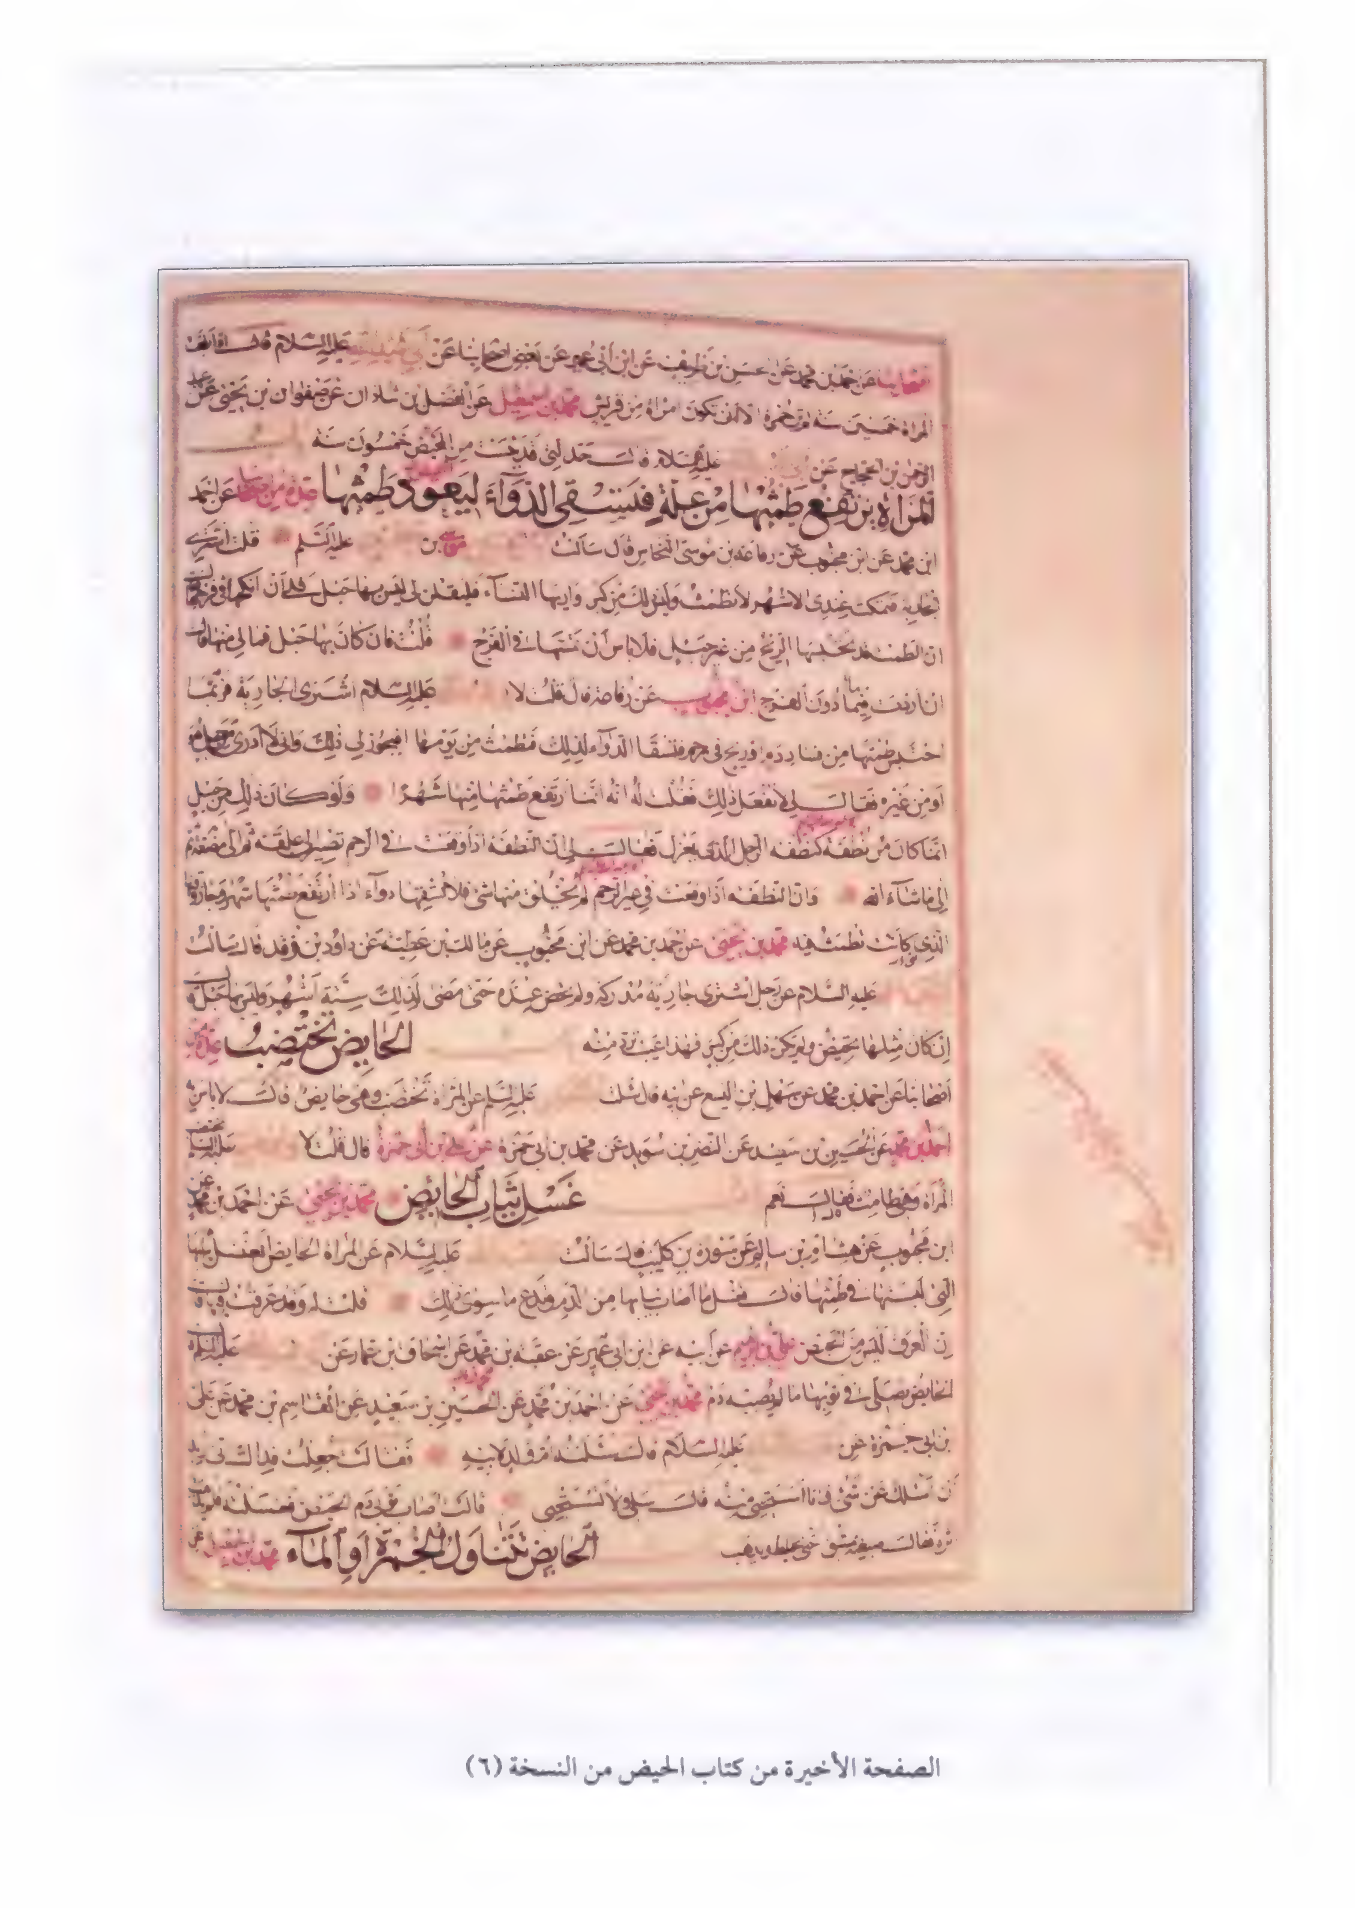 أصحابنا عن احمد بن محمد عن الحسن بن ظريف عن ابن أبي عمير عن بعض اصحابنا عن أبي عليه السلام قال اذا بلغت
المراة خمسين سنة لم تر حمرة الا أن تكون امراة من قريش محمد بن اسمعيل عن الفضل بن شاذان عن صفوان بن يحيى عن عبد
الرحمن بن الحجاج عن أبي عليه السلام قال حد التي قد يئست من المحيض خمسون سنة
المرأة يرتفع طمثها من علة فتسقى الدواء ليعود طمثها عدة من اصحابنا عن احمد
ابن محمد عن ابن محبوب عن رفاعة بن موسى النخاس قال سالت موسى بن عليه السلم قلت اشترى
الجارية فتمكث عندي الاشهر لا تطمث وليس ذلك من كبر واريها النساء فيقلن لي ليس بها حبل فلي أن انكحها في فرجها
ان الطمث قد تحبسها الريح من غير حبل فلا باس أن تمسها في الفرج قلت فان كان بها حبل فما لي منها قال
ان اردت فيما دون الفرج ابن محبوب عن رفاعة قال قلت لا عليه السلام اشترى الجارية فربما
احتبس طمثها من فساد دم او ريح في رحم فتسقا الدواء لذلك فتطمث من يومها افيجوز لي ذلك وانا لا أدرى من حبل هو
او من غيره فقال لي لا تفعل ذلك فقلت له انه انما ارتفع طمثها منها شهرا ولو كان ذلك من حبل
انما كان من نطفة كنطفة الرجل الذي يعزل فقال لي ان النطفة اذا وقعت في الرحم تصير الى علقة ثم الى مضغة ثم
الى ما شاء الله وان النطفة اذا وقعت في غير الرحم لم يخلق منها شئ فلا تسقها دواء اذا ارتفع طمثها شهر وجاز وقتها
الذي كانت تطمث فيه محمد بن يحيى عن احمد بن محمد عن ابن محبوب عن مالك بن عطية عن داود بن فرقد قال سالت
عليه السلام عن رجل اشترى جارية مدركة ولم تحض عنده حتى مضى لذلك ستة اشهر وليس بها حبل قال
إن كان مثلها تحيض ولم يكن ذلك من كبر فهذا عيب ترد منه الحايض تختضب عدة من
اصحابنا عن احمد بن محمد عن سهل بن اليسع عن ابيه قال سالت عليه السلم عن المراة تختضب وهي حايض قال لا باس به
احمد بن محمد عن الحسين بن سعيد عن النضر بن سويد عن محمد بن ابي حمزة عن علي بن أبي حمزة قال قلت لا عليه السلم تختضب
المراة وهي طامث فقال نعم غسل ثياب الحايض محمد بن يحيى عن احمد بن محمد عن
ابن محبوب عن هشام بن سالم عن سورة بن كليب قال سالت عليه السلام عن المراة الحايض اتغسل ثيابها
التي لبستها في طمثها قال تغسل ما اصاب ثيابها من الدم وتدع ما سوى ذلك قلت له وقد عرقت فيها قال
إن العرق ليس من الحيض علي بن ابراهيم عن أبيه عن ابن ابي عمير عن عقبة بن محمد عن اسحاق بن عمار عن عليه السلم
الحايض تصلى في ثوبها ما لم يصبه دم محمد بن يحيى عن احمد بن محمد عن الحسين بن سعيد عن القاسم بن محمد عن علي
بن ابي حمزة عن عليه السلام قال سئلته ام ولد لابيه فقالت جعلت فداك اني اريد
أن اسئلك عن شئ وانا استحيي منه قال سلي ولا تستحيي قالت اصاب ثوبي دم الحيض فغسلته فلم يذهب
اثره فقال اصبغيه بمشق حتى يختلط ويذهب الحايض تتناول الخمرة او الماء محمد بن اسمعيل عن
الصفحة الأخيرة من كتاب الحيض من النسخة (٦)